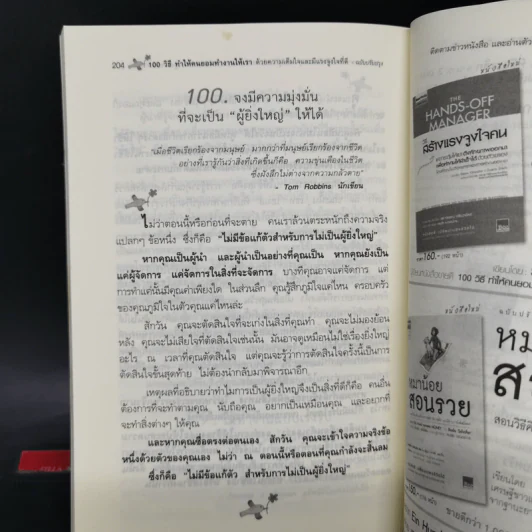 204 100 วิธี ทำให้คนยอมทำงานให้เรา ด้วยความเต็มใจและมีแรงจูงใจที่ดี - ฉบับปรับปรุง
100. จงมีความมุ่งมั่น
ที่จะเป็น "ผู้ยิ่งใหญ่" ให้ได้
"เมื่อชีวิตเรียกร้องจากมนุษย์ มากกว่าที่มนุษย์เรียกร้องจากชีวิต
อย่างที่เรารู้กันว่าสิ่งที่เกิดขึ้นก็คือ ความขุ่นเคืองในชีวิต
ซึ่งฝังลึกไม่ต่างจากความกลัวตาย"
- Tom Robbins นักเขียน
ไม่ว่าตอนนี้หรือก่อนที่จะตาย คนเราล้วนตระหนักถึงความจริง
แปลกๆ ข้อหนึ่ง ซึ่งก็คือ "ไม่มีข้อแก้ตัวสำหรับการไม่เป็นผู้ยิ่งใหญ่"
หากคุณเป็นผู้นำ และผู้นำเป็นอย่างที่คุณเป็น หากคุณยังเป็น
แค่ผู้จัดการ แค่จัดการในสิ่งที่จะจัดการ บางทีคุณอาจแค่จัดการ แต่
การทำแค่นั้นมีคุณค่าเพียงใด ในส่วนลึก คุณรู้สึกภูมิใจแค่ไหน ครอบครัว
ของคุณภูมิใจในตัวคุณแค่ไหนล่ะ
สักวัน คุณจะตัดสินใจที่จะเก่งในสิ่งที่คุณทำ คุณจะไม่มองย้อน
หลัง คุณจะไม่เสียใจที่ตัดสินใจเช่นนั้น มันอาจดูเหมือนไม่ใช่เรื่องยิ่งใหญ่
อะไร ณ เวลาที่คุณตัดสินใจ แต่คุณจะรู้ว่าการตัดสินใจครั้งนี้เป็นการ
ตัดสินใจขั้นสุดท้าย ไม่ต้องนำกลับมาพิจารณาอีก
เหตุผลที่อธิบายว่าทำไมการเป็นผู้ยิ่งใหญ่จึงเป็นสิ่งที่ดีก็คือ คนอื่น
ต้องการที่จะทำตามคุณ นับถือคุณ อยากเป็นเหมือนคุณ และอยากที่
จะทำสิ่งต่างๆ ให้คุณ
และหากคุณซื่อตรงต่อตนเอง สักวัน คุณจะเข้าใจความจริงข้อ
หนึ่งด้วยตัวของคุณเอง ไม่ว่า ณ ตอนนี้หรือตอนที่คุณกำลังจะสิ้นลม
ซึ่งก็คือ "ไม่มีข้อแก้ตัว สำหรับการไม่เป็นผู้ยิ่งใหญ่"
ติดตามข่าวหนังสือ และอ่านตัว
THE
HANDS-OFF
MANAGER
สร้างแรงจูงใจคน
160.-
100 วิธี ทำให้คนยอม
หมาน้อย
สอนรวย
หม
ส
สอนวิธี
โดย
ขายดีกว่า 1